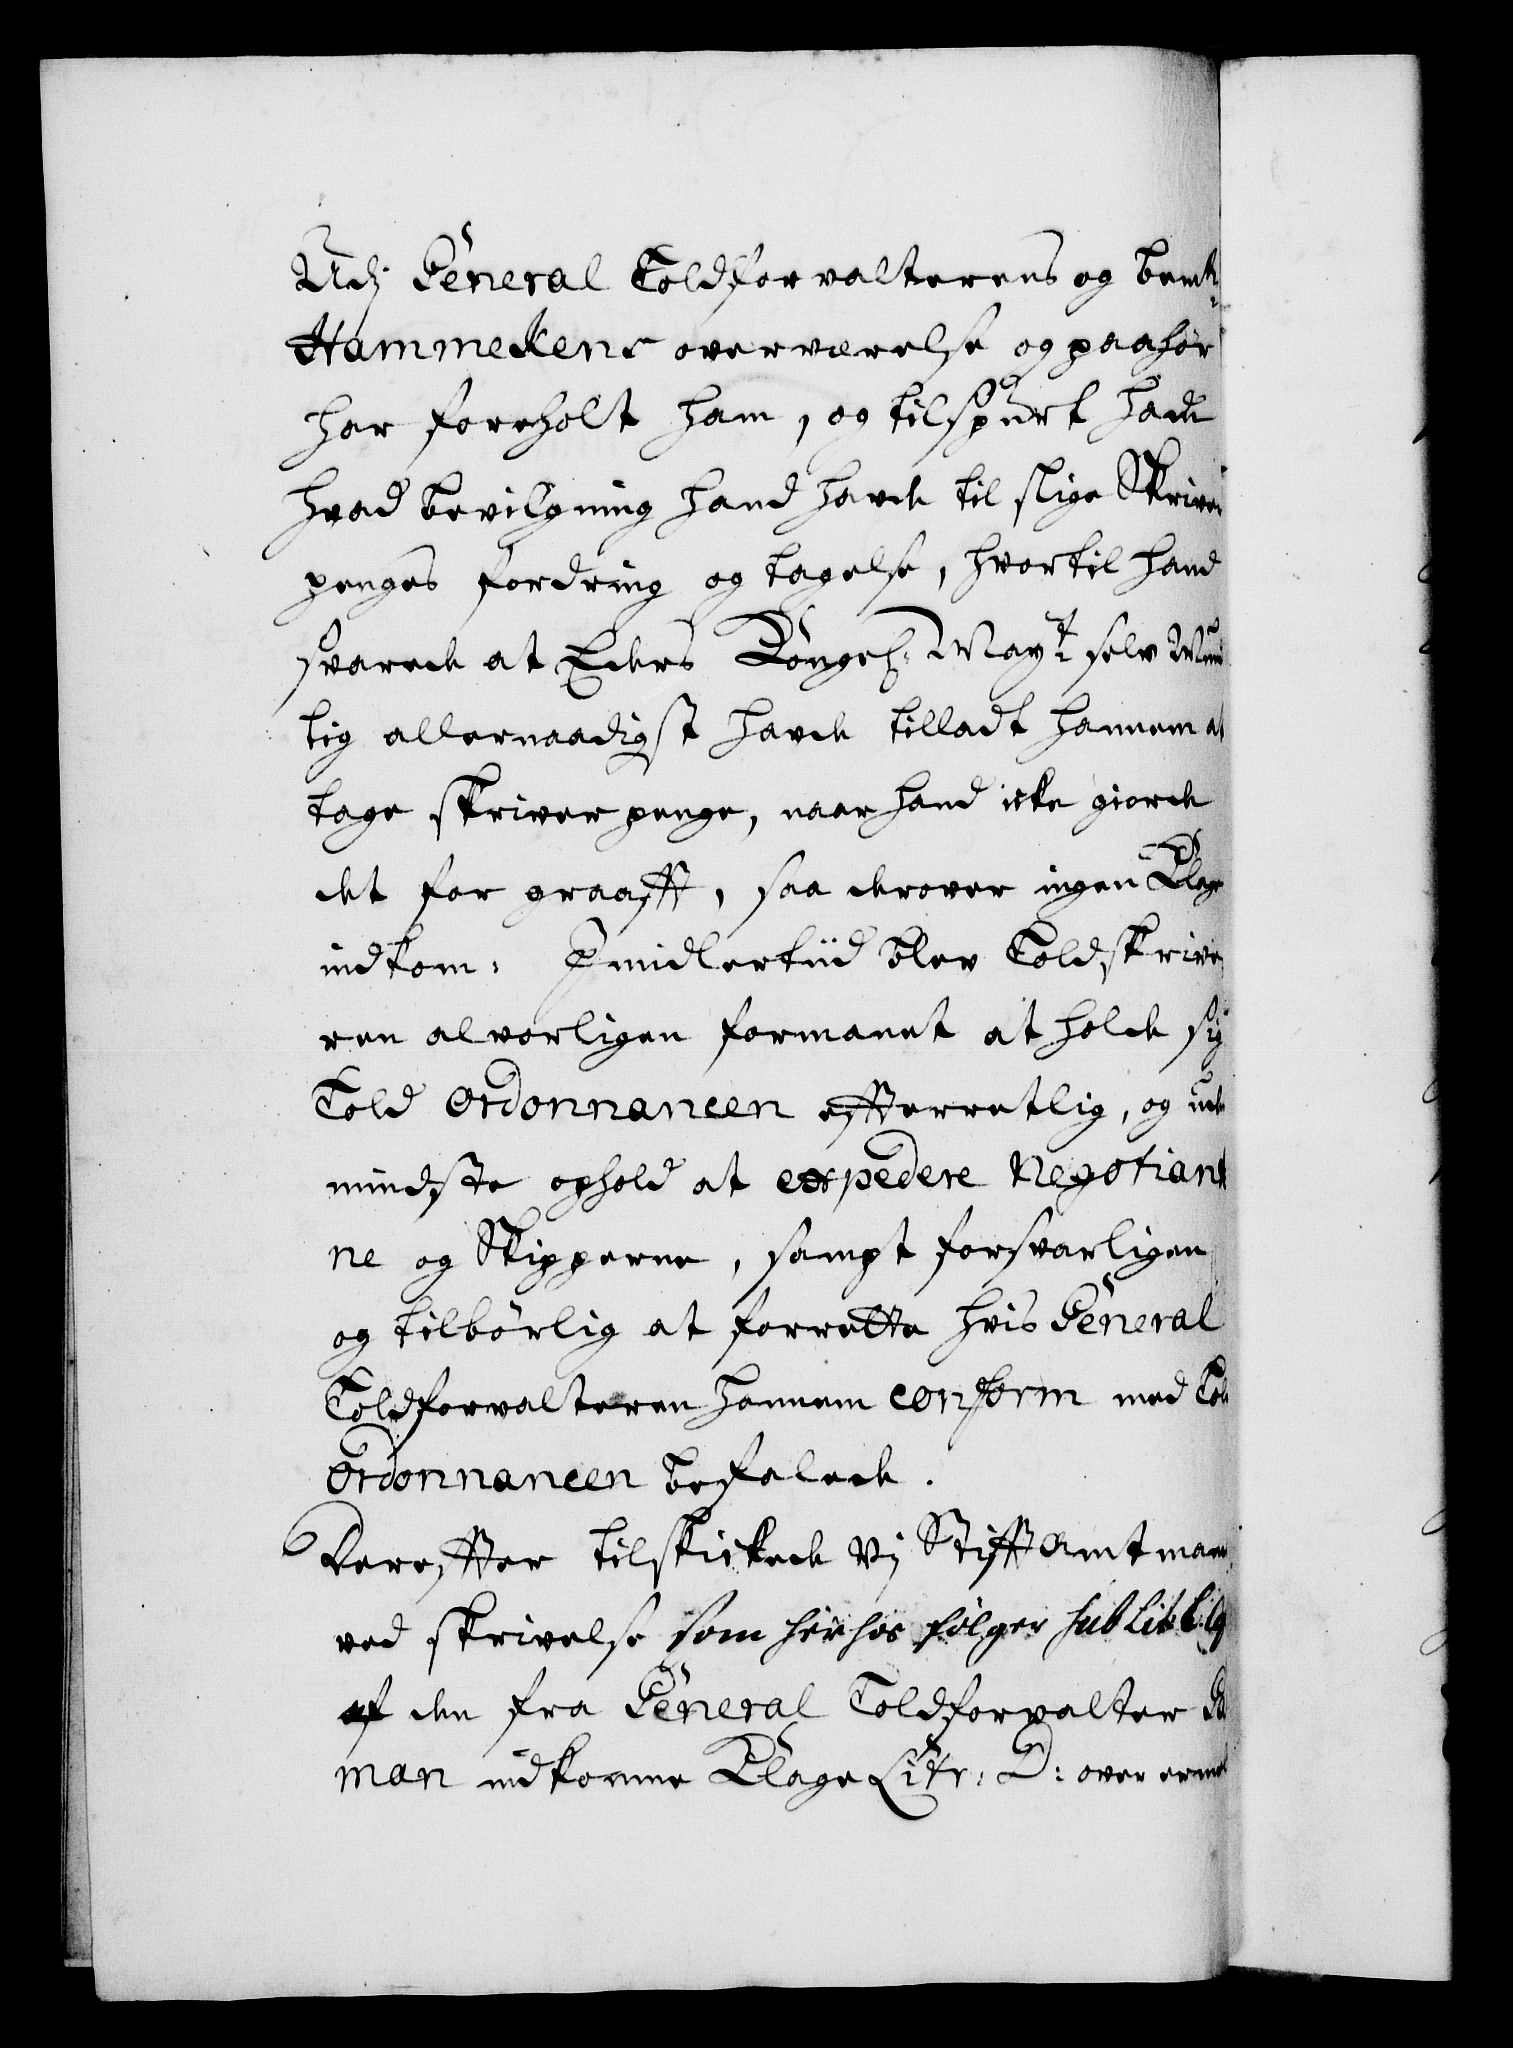 Udj General Toldforvalterens og bemte
Hammekens overværelse og paahør
har foreholt ham, og tilspurt hade
hvad bevilgning hand havde til slige Skriver
penges fordring og tagelse, hvortil hand
svarede at Eders Kongel: Mayt: selv Mund
tlig allernaadigst havde tilladt hannem at
tage skriverpenge, naar hand icke giorde
det for graafft, saa derover ingen Klage
indkom. Imidlertiid blev Toldskrive
ren alvorligen formanet at holde sig
Told Ordonnancen effterretlig, og uden
mindste ophold at expedere Negotiant
ne og Skipperne, sampt forsvarligen
og tilbørlig at forrette hvis General
Toldforvalteren hannem conform med Told
Ordonnancen befalede.
Dereffter tilskickede Vj Stifftamtmand
ved skrivelse som hérhos følger sub Lit:
af den fra General Toldforvalter
man indkomne Klage Litr: D: over ermel